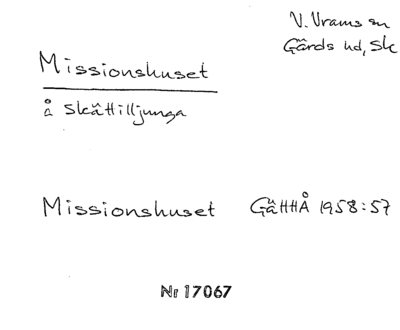 V. Vrams sn
Gärds hd, Sk
Missionshuset
å Skättilljunga
Missionshuset GäHHÅ 1958:57
Nr 17067